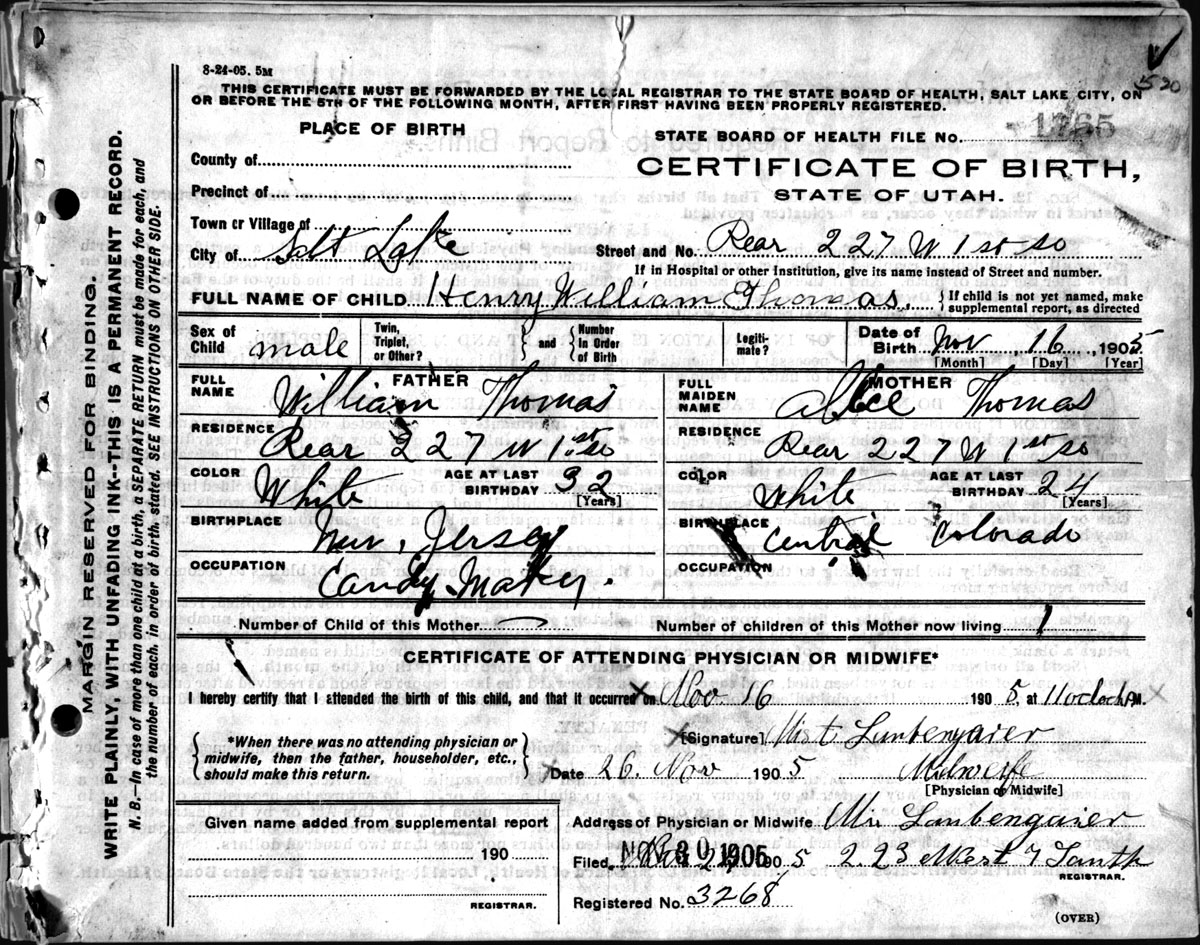 8-24-05. 5M
THIS CERTIFICATE MUST BE FORWARDED BY THE LOCAL REGISTRAR TO THE STATE BOARD OF HEALTH, SALT LAKE CITY, ON
OR BEFORE THE 5TH OF THE FOLLOWING MONTH, AFTER FIRST HAVING BEEN PROPERLY REGISTERED.
520
PLACE OF BIRTH
STATE BOARD OF HEALTH FILE No. 1765
County of
CERTIFICATE OF BIRTH,
Precinct of
STATE OF UTAH.
Town or Village of
City of Salt Lake Street and No. Rear 227 W 1st So
If in Hospital or other Institution, give its name instead of Street and number.
FULL NAME OF CHILD. Henry William Thomas. { If child is not yet named, make
supplemental report, as directed
Sex of Child male Twin, Triplet, or Other? } and { Number in Order of Birth Legiti- mate? Date of Birth Nov 16, 1905
[Month] [Day] [Year]
FATHER
FULL NAME William Thomas
MOTHER
FULL MAIDEN NAME Alice Thomas
RESIDENCE Rear 227 W 1st So
RESIDENCE Rear 227 W 1st So
COLOR White AGE AT LAST BIRTHDAY 32 [Years]
COLOR White AGE AT LAST BIRTHDAY 24 [Years]
BIRTHPLACE New Jersey
BIRTHPLACE Central Colorado
OCCUPATION Candy Maker.
OCCUPATION
Number of Child of this Mother
Number of children of this Mother now living 1
CERTIFICATE OF ATTENDING PHYSICIAN OR MIDWIFE*
I hereby certify that I attended the birth of this child, and that it occurred on Nov. 16 1905, at 11 oclock AM.
{ *When there was no attending physician or
midwife, then the father, householder, etc.,
should make this return. }
[Signature]
Date 26. Nov 1905 Midweife
[Physician or Midwife]
Given name added from supplemental report
190
REGISTRAR.
Address of Physician or Midwife
Filed, NOV 29 1905 1905 223 West
REGISTRAR.
Registered No. 3268
(OVER)
MARGIN RESERVED FOR BINDING.
WRITE PLAINLY, WITH UNFADING INK--THIS IS A PERMANENT RECORD.
N. B.—In case of more than one child at a birth, a SEPARATE RETURN must be made for each, and
the number of each, in order of birth, stated. SEE INSTRUCTIONS ON OTHER SIDE.